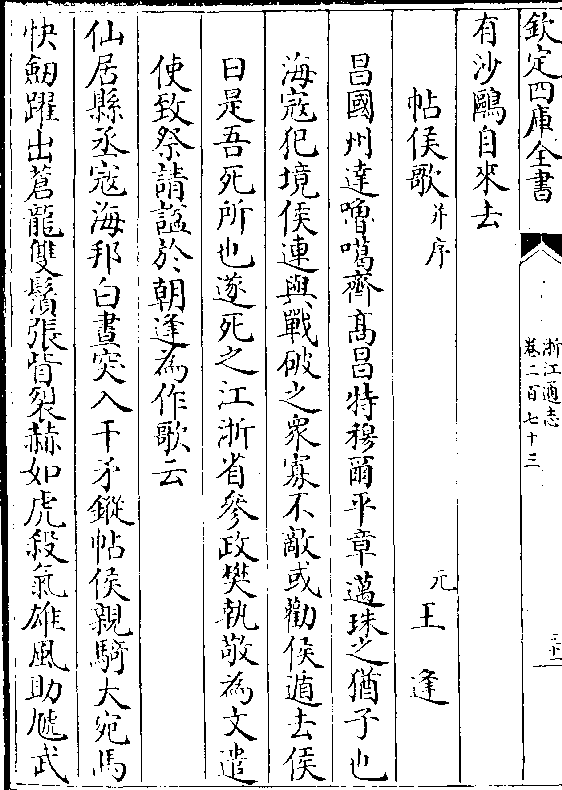 欽定四庫全書
浙江通志
卷二百七十三
三十二
有沙鷗自來去
帖侯歌并序
元王逢
昌國州達嚕噶齊高昌特穆爾平章邁珠之猶子也
海寇犯境侯連與戰破之衆寡不敵或勸侯遁去侯
曰是吾死所也遂死之江浙省參政樊執敬為文遣
使致祭請諡於朝逢為作歌云
仙居縣丞寇海邦白晝突入千矛鏦帖侯親騎大宛馬
快劒躍出蒼龍雙鬚張眥裂赫如虎殺氣雄風助虓武